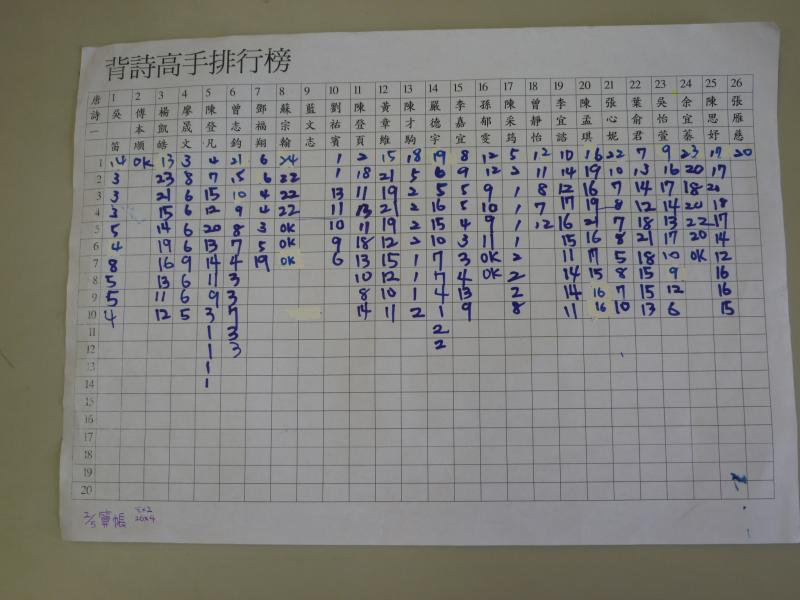 背詩高手排行榜
唐詩一 1 2 3 4 5 6 7 8 9 10 11 12 13 14 15 16 17 18 19 20 21 22 23 24 25 26
吳笛 傅本順 楊凱皓 廖晟文 陳登凡 曾志鈞 鄧福翔 蘇宗翰 藍文志 劉祐賓 陳登頁 黃章維 陳才駒 嚴德宇 李嘉宜 孫郁雯 陳采筠 曾靜怡 李宜諮 陳孟琪 張心妮 葉俞君 吳怡萱 余宜蓁 陳思妤 張雁慈
1 14 OK 13 3 4 21 6 24 1 2 15 18 19 8 12 5 12 10 16 22 7 9 23 17 20
2 3 23 8 7 15 6 22 1 18 21 5 6 9 12 2 11 14 19 10 13 16 20 17
3 3 21 6 15 10 4 22 13 11 19 2 5 5 9 1 8 12 16 7 14 17 18 20
4 3 15 6 12 9 4 22 11 13 21 2 16 5 10 1 7 17 19 8 12 14 20 18
5 5 14 6 20 8 3 OK 10 11 19 2 15 4 9 1 12 16 21 7 18 13 22 17
6 4 19 6 13 7 5 OK 9 18 12 2 10 3 11 1 15 16 8 21 17 20 14
7 8 16 9 14 4 19 OK 6 13 15 1 7 3 OK 2 11 17 5 18 10 OK 12
8 5 13 6 11 3 10 12 1 7 4 OK 2 14 15 8 15 9 16
9 5 11 6 9 3 8 10 1 4 13 2 14 16 7 15 12 16
10 4 12 5 3 7 14 11 2 1 9 8 11 16 10 13 6 15
11 1 3 2
12 1 3 2
13 1
14 1
15
16
17
18
19
20
2/5 算帳